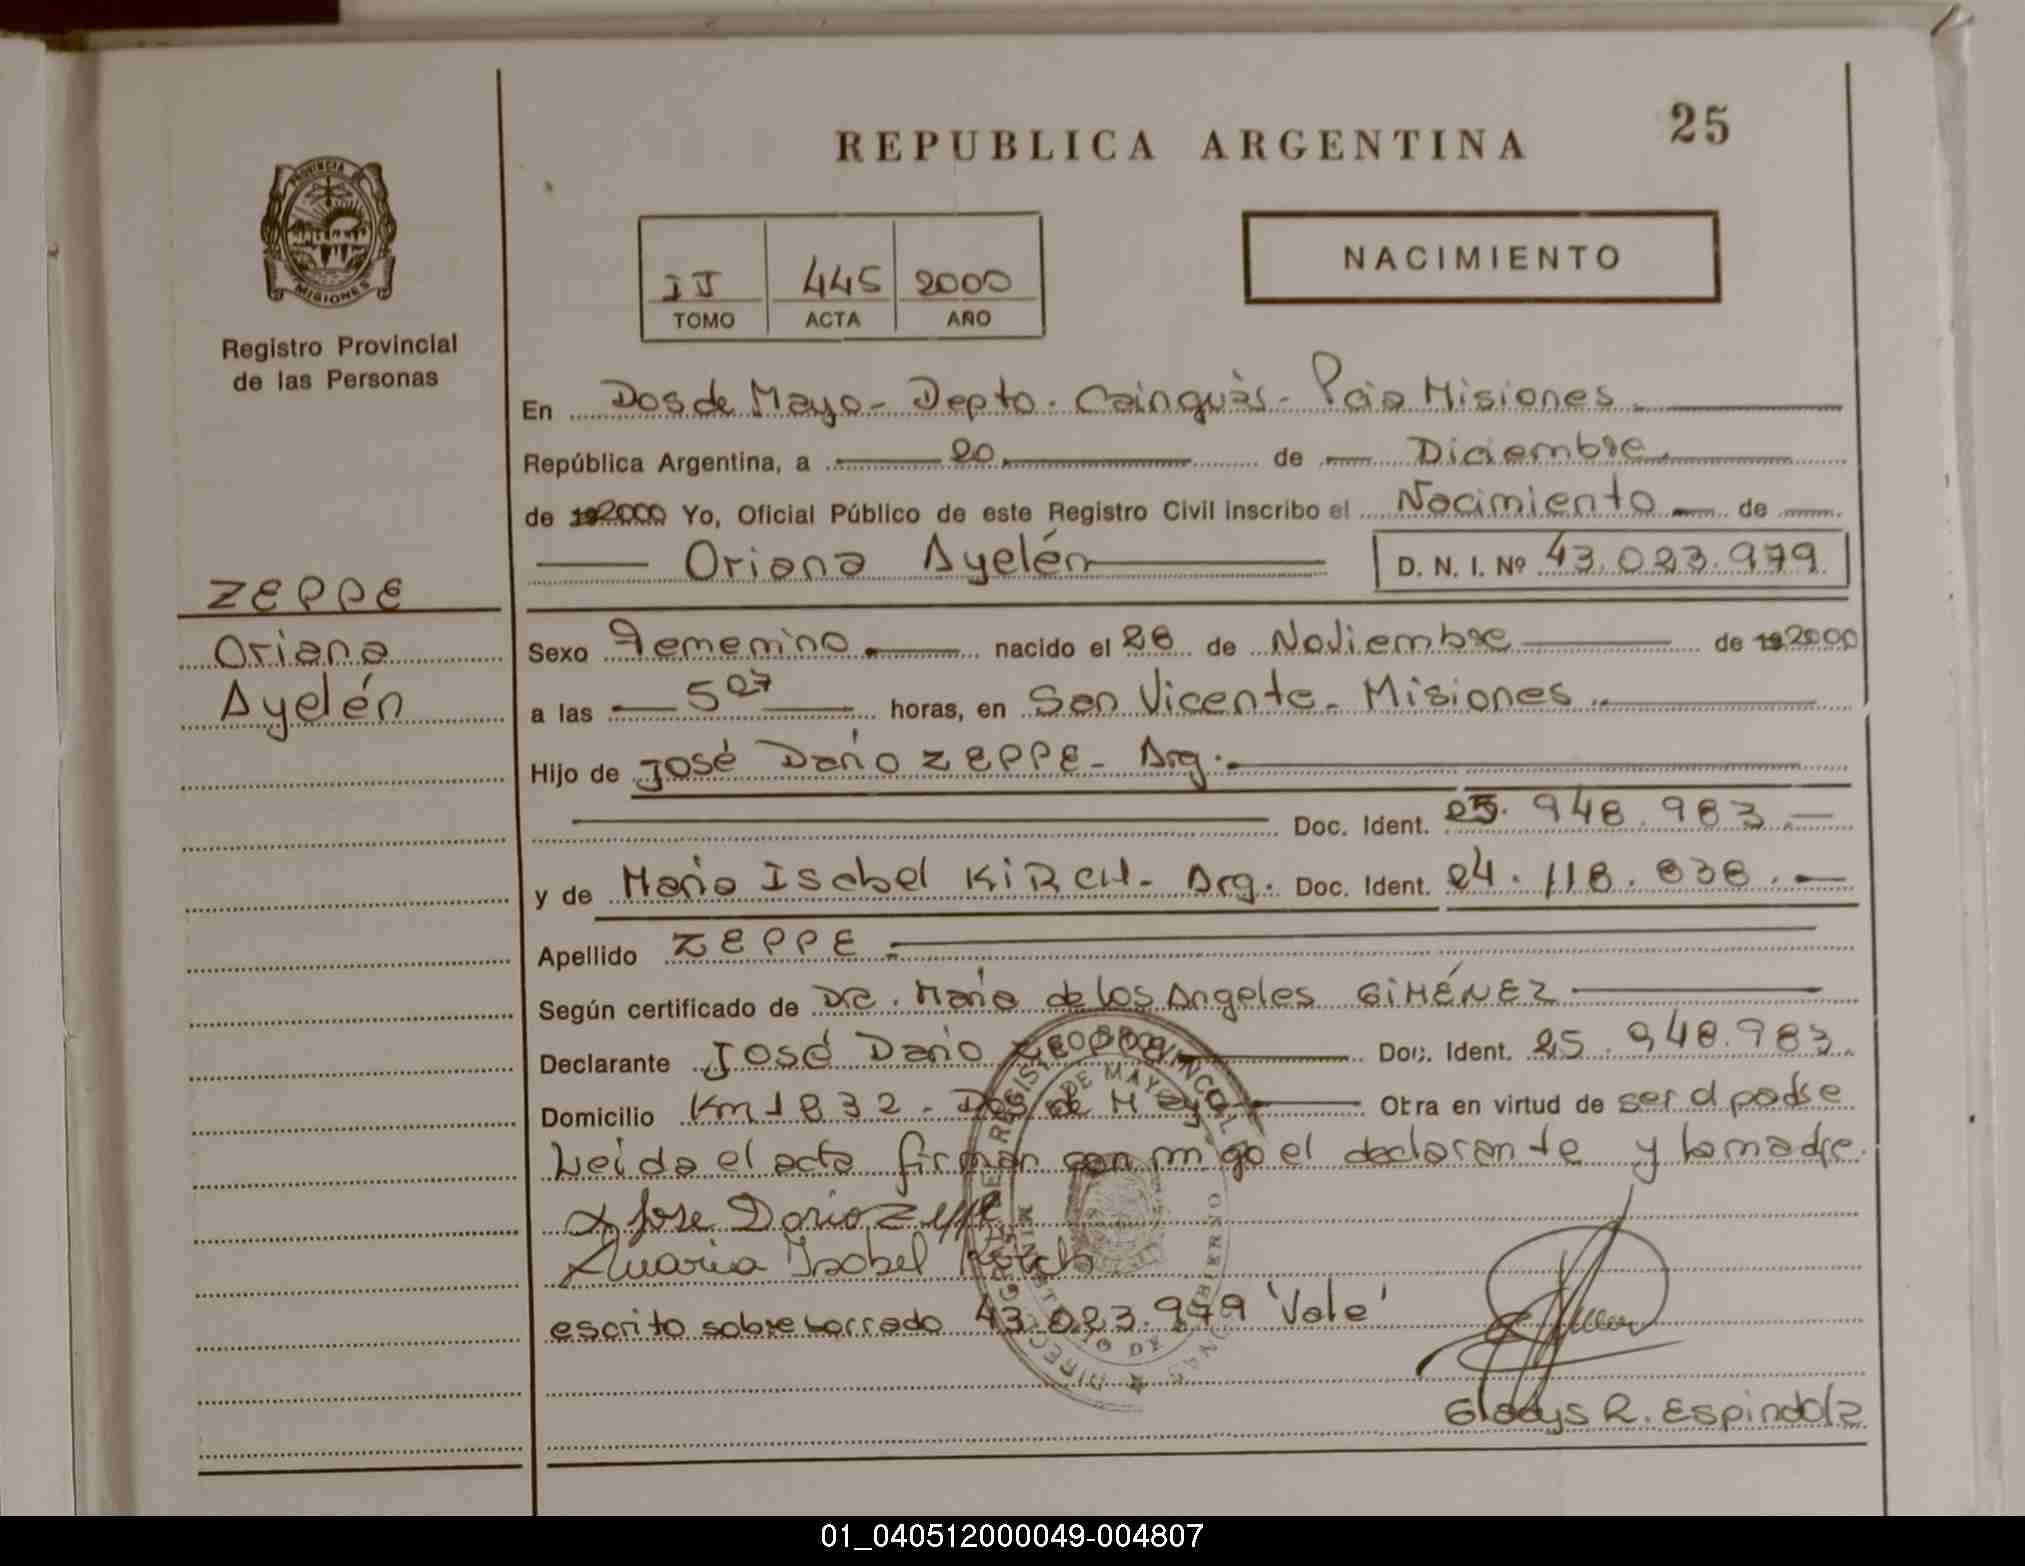 25
REPUBLICA ARGENTINA
PROVINCIA
MISIONES
Registro Provincial
de las Personas
NACIMIENTO
IJ 445 2000
TOMO ACTA AÑO
En Dos de Mayo - Depto. Cainguàs - Pcia Misiones.
República Argentina, a 20 de Diciembre
de 192000 Yo, Oficial Público de este Registro Civil inscribo el Nacimiento de
Oriana Ayelén D. N. I. Nº 43.023.979
ZEPPE
Oriana
Ayelén
Sexo Femenino nacido el 28 de Noviembre de 192000
a las 5 07 horas, en San Vicente - Misiones
Hijo de José Dario ZEPPE - Arg.
Doc. Ident. 25.948.983.
y de Maria Isabel KIRCH - Arg. Doc. Ident. 24.118.838.
Apellido ZEPPE
Según certificado de Dra. Maria de los Angeles GIMÉNEZ
Declarante José Dario ZEPPE Doc. Ident. 25.948.983.
Domicilio Km 1832 - Dos de Mayo Obra en virtud de ser el padre
Leida el acta firman conmigo el declarante y la madre.
x Jose Dario Zeppe
x Maria Isabel Kirch
escrito sobre borrado 43.023.979 'Vale'
Gladys R. Espindola
01_040512000049-004807